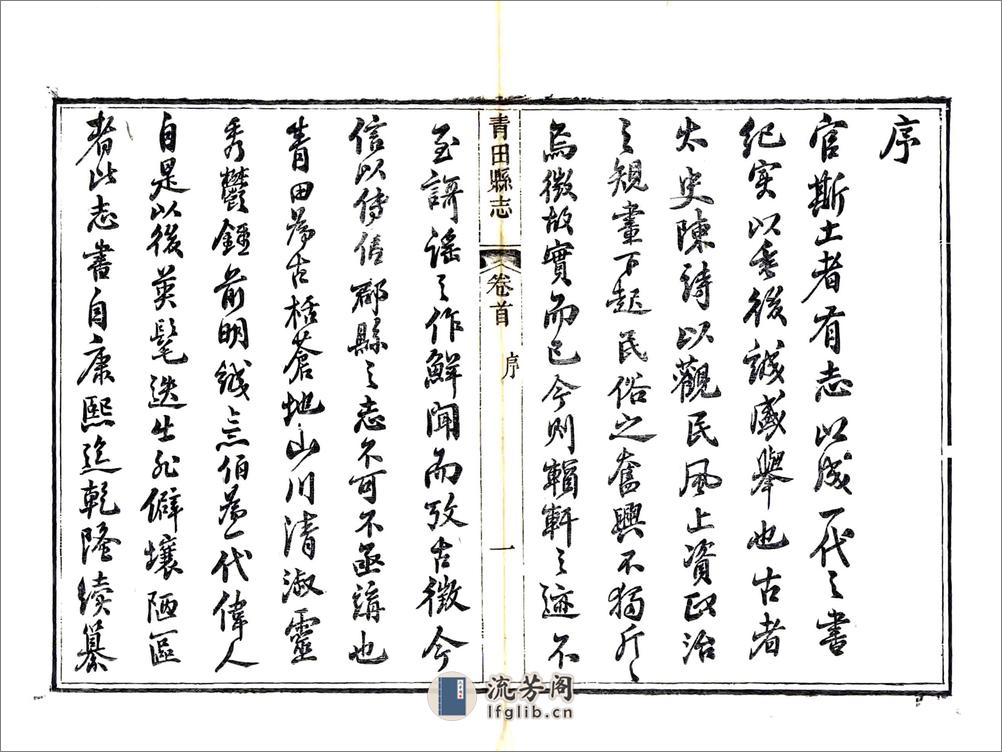 序
官斯土者有志以成一代之書
紀实以垂後誠盛舉也古者
太史陳詩以觀民風上資政治
之規畫下起民俗之奮興不獨斤〻
焉徵故實而已今則輶軒之迹不
青田縣志
卷首
序
一
至謌謡之作鮮聞而攷古徵今
信以傳信郡縣之志不可不亟講也
青田為古栝蒼地山川清淑靈
秀鬱鍾前明誠意伯為一代偉人
自是以後英髦迭生非僻壤陋區
者比志書自康熙迄乾隆續纂
流芳阁
lfglib.cn